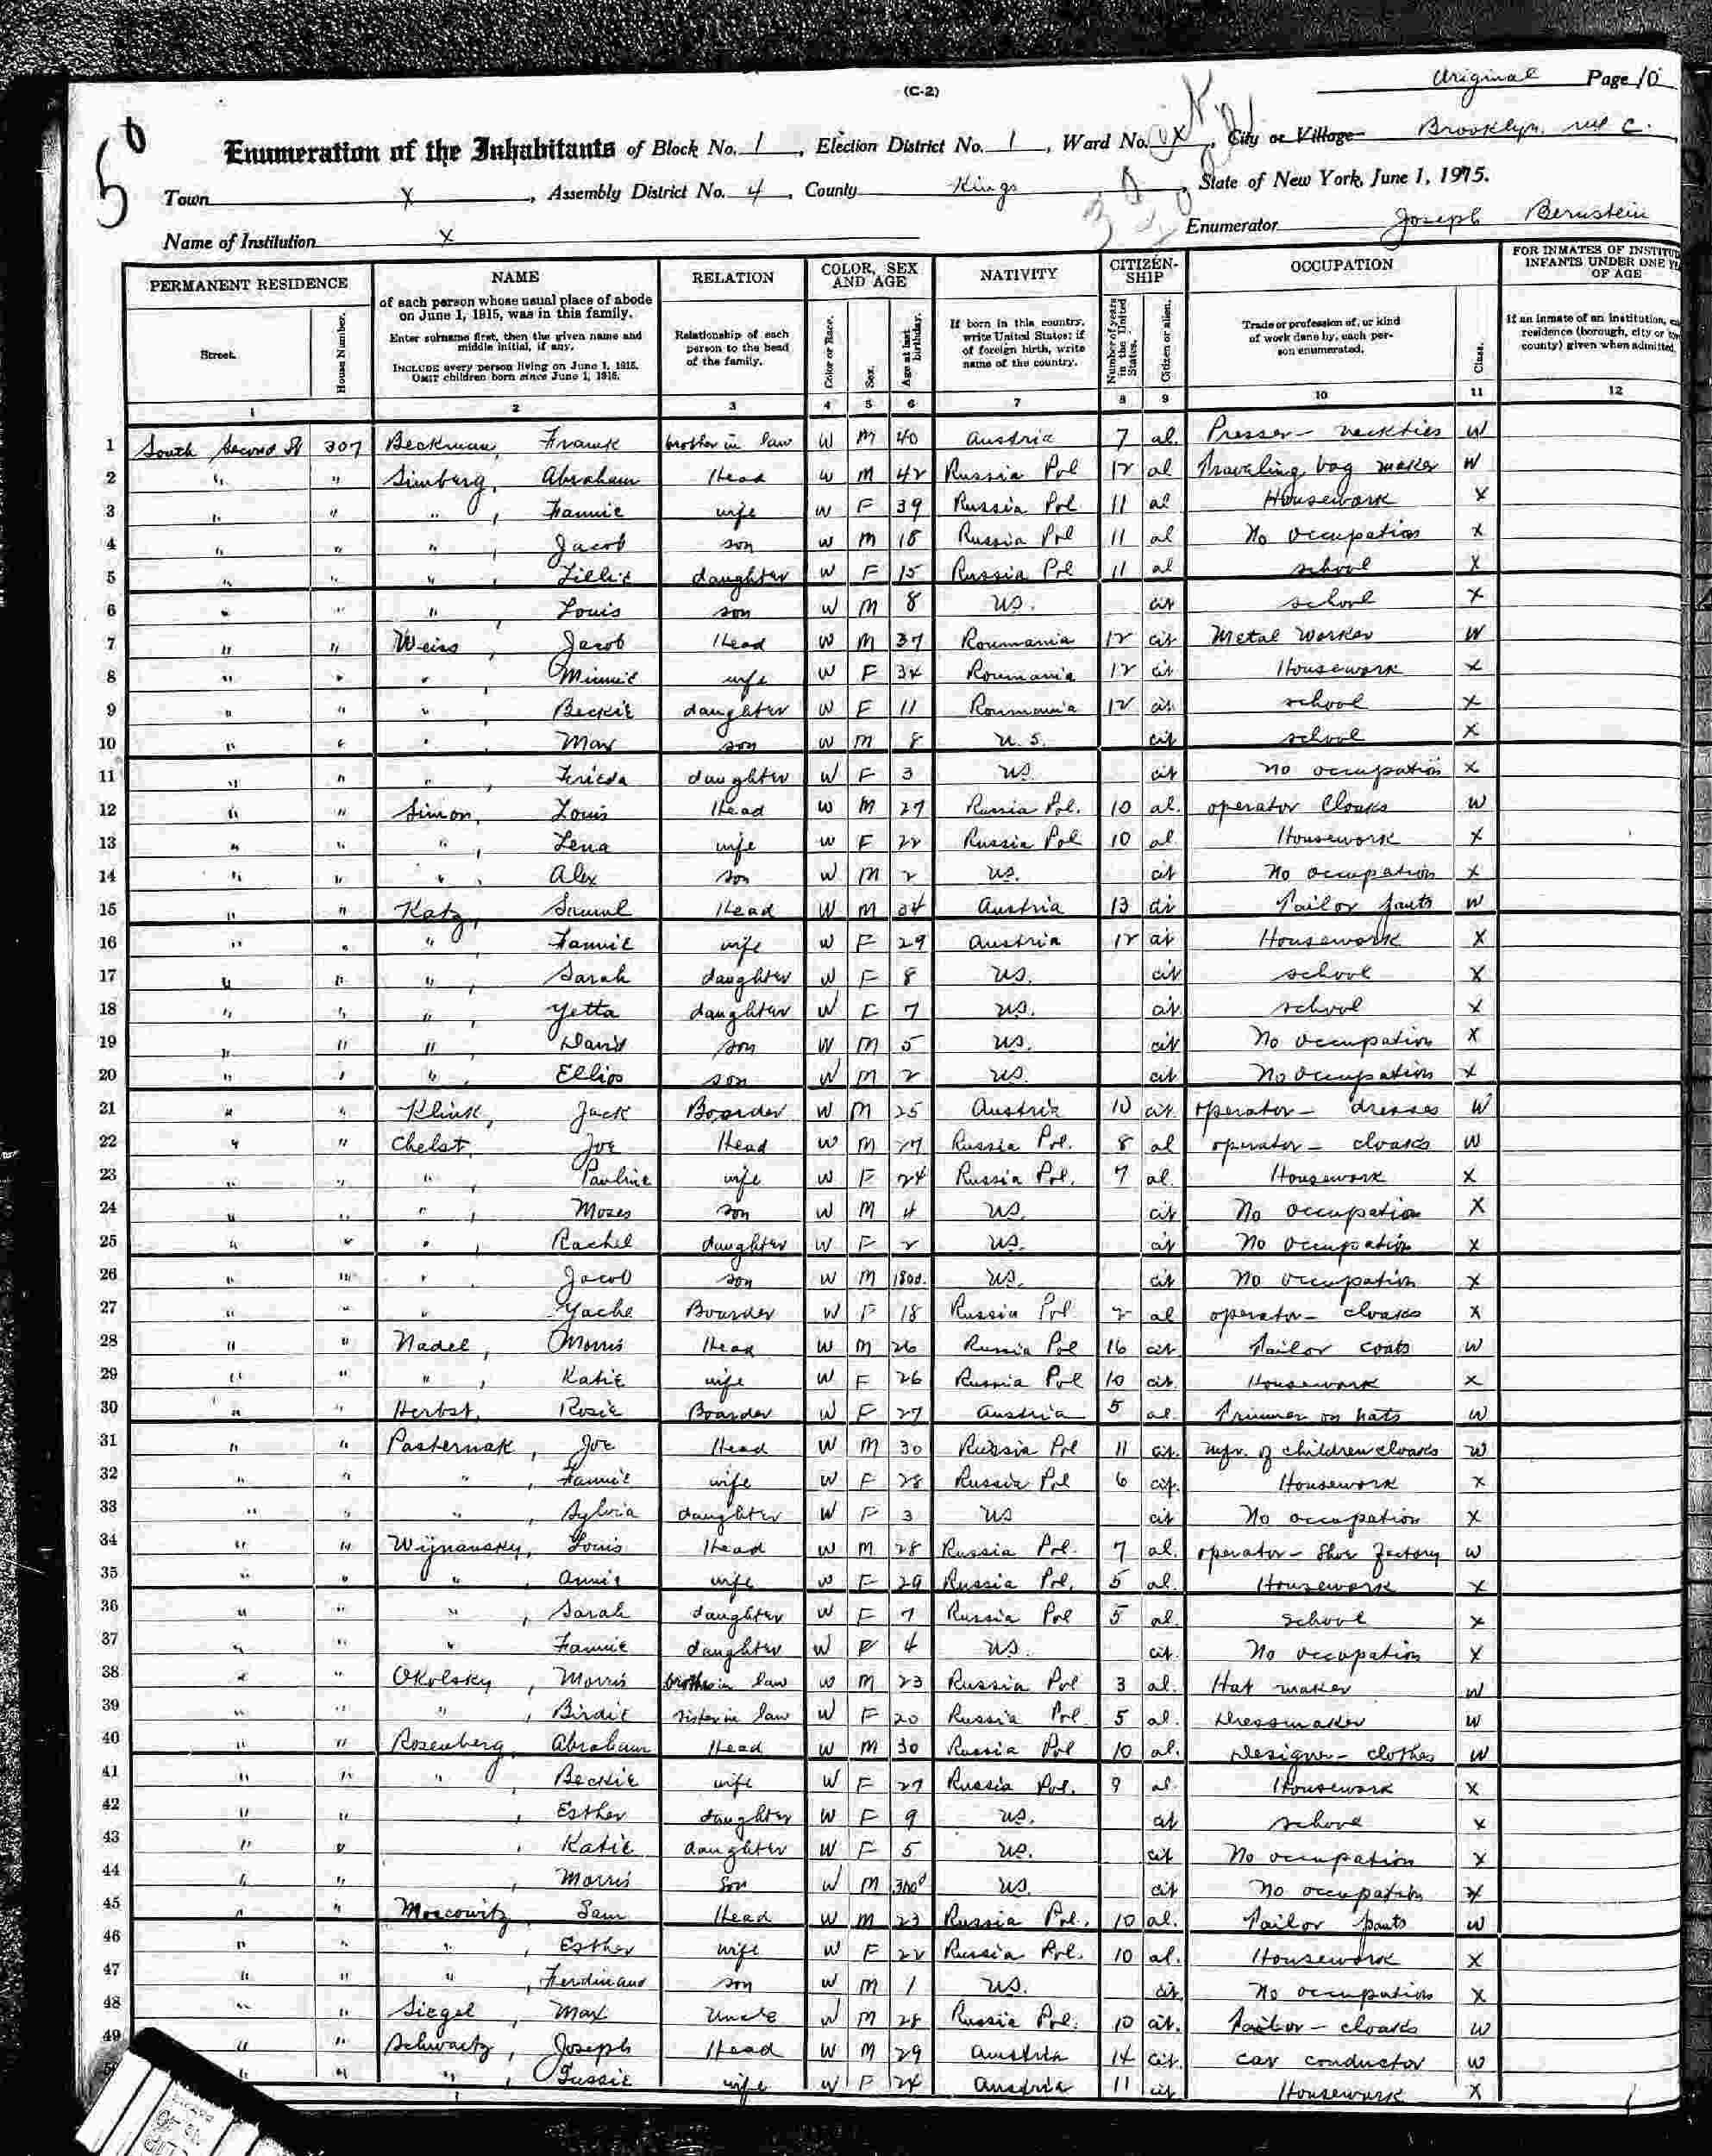 (C-2)
Original Page 10
Enumeration of the Inhabitants of Block No. 1, Election District No. 1, Ward No. X, City or Village Brooklyn
Town X, Assembly District No. 4, County Kings, State of New York, June 1, 1915.
Name of Institution X Enumerator Joseph Bernstein
PERMANENT RESIDENCE NAME RELATION COLOR, SEX AND AGE NATIVITY CITIZEN-SHIP OCCUPATION FOR INMATES OF INSTITU INFANTS UNDER ONE YE OF AGE
Street. House Number. of each person whose usual place of abode on June 1, 1915, was in this family. Enter surname first, then the given name and middle initial, if any. INCLUDE every person living on June 1, 1915. OMIT children born since June 1, 1915. Relationship of each person to the head of the family. Color or Race. Sex. Age at last birthday. If born in this country, write United States; if of foreign birth, write name of the country. Number of years in the United States. Citizen or alien. Trade or profession of, or kind of work done by, each person enumerated. Class. If an inmate of an institution, residence (borough, city or county) given when admitted.
1 2 3 4 5 6 7 8 9 10 11 12
1 South Second St 307 Beckman, Frank brother in law W M 40 Austria 7 al. Presser - neckties W
2 " " Simberg, Abraham Head W M 42 Russia Pol 12 al Traveling bag maker W
3 " " " , Fannie wife W F 39 Russia Pol 11 al Housework X
4 " " " , Jacob son W M 18 Russia Pol 11 al No occupation X
5 " " " , Lillie daughter W F 15 Russia Pol 11 al school X
6 " " " , Louis son W M 8 US. cit school X
7 " " Weiss , Jacob Head W M 37 Roumania 12 cit Metal Worker W
8 " " " , Minnie wife W F 34 Roumania 12 cit Housework X
9 " " " , Beckie daughter W F 11 Roumania 12 cit school X
10 " " " , Max son W M 8 U.S. cit school X
11 " " " , Frieda daughter W F 3 US. cit No occupation X
12 " " Simon, Louis Head W M 27 Russia Pol. 10 al. operator Cloaks W
13 " " " , Lena wife W F 22 Russia Pol 10 al. Housework X
14 " " " , Alex son W M 2 US. cit No occupation X
15 " " Katz, Samuel Head W M 34 Austria 13 cit Tailor pants W
16 " " " , Fannie wife W F 29 Austria 12 cit Housework X
17 " " " , Sarah daughter W F 8 US. cit school X
18 " " " , Yetta daughter W F 7 US. cit school X
19 " " " , David son W M 5 US. cit No occupation X
20 " " " , Ellios son W M 2 US. cit No occupation X
21 " " Klink, Jack Boarder W M 25 Austria 10 cit. operator - dresses W
22 " " Chelst, Joe Head W M 27 Russia Pol. 8 al operator - cloaks W
23 " " " , Pauline wife W F 24 Russia Pol. 7 al. Housework X
24 " " " , Moses son W M 4 US. cit No occupation X
25 " " " , Rachel daughter W F 2 US. cit No occupation X
26 " " " Jacob son W M US. cit No occupation X
27 " " " Yache Boarder W F 18 Russia Pol 2 al operator - cloaks X
28 " " Nadel , Morris Head W M 26 Russia Pol 16 cit. Tailor coats W
29 " " " , Katie wife W F 26 Russia Pol 10 cit. Housework X
30 " " Herbst, Rosie Boarder W F 27 Austria 5 al. Trimmer on hats W
31 " " Pasternak , Joe Head W M 30 Russia Pol 11 cit. mfr. of children cloaks W
32 " " " , Fannie wife W F 28 Russia Pol 6 cit. Housework X
33 " " " , Sylvia daughter W F 3 US cit No occupation X
34 " " Wijnansky, Louis Head W M 28 Russia Pol. 7 al. operator - Shoe Factory W
35 " " " , Annie wife W F 29 Russia Pol. 5 al. Housework X
36 " " " , Sarah daughter W F 7 Russia Pol 5 al. school X
37 " " " Fannie daughter W F 4 US. cit. No occupation X
38 " " Okolsky , Morris brother in law W M 23 Russia Pol 3 al. Hat maker W
39 " " " , Birdie sister in law W F 20 Russia Pol 5 al. Dressmaker W
40 " " Rosenberg, Abraham Head W M 30 Russia Pol 10 al. Designer - clothes W
41 " " " , Beckie wife W F 27 Russia Pol. 9 al. Housework X
42 " " , Esther daughter W F 9 US. cit school X
43 " " , Katie daughter W F 5 US. cit No occupation X
44 " " , Morris Son W M US. cit No occupation X
45 " " Moscowitz , Sam Head W M 23 Russia Pol. 10 al. Tailor pants W
46 " " " , Esther wife W F 22 Russia Pol. 10 al. Housework X
47 " " " , Ferdinand son W M 1 US. cit. No occupation X
48 " " Siegel , Max Uncle W M 28 Russia Pol. 10 cit. Tailor - cloaks W
49 " " Schwartz , Joseph Head W M 29 Austria 14 cit. car conductor W
50 " " " , Tussie wife W F 24 Austria 11 cit Housework X